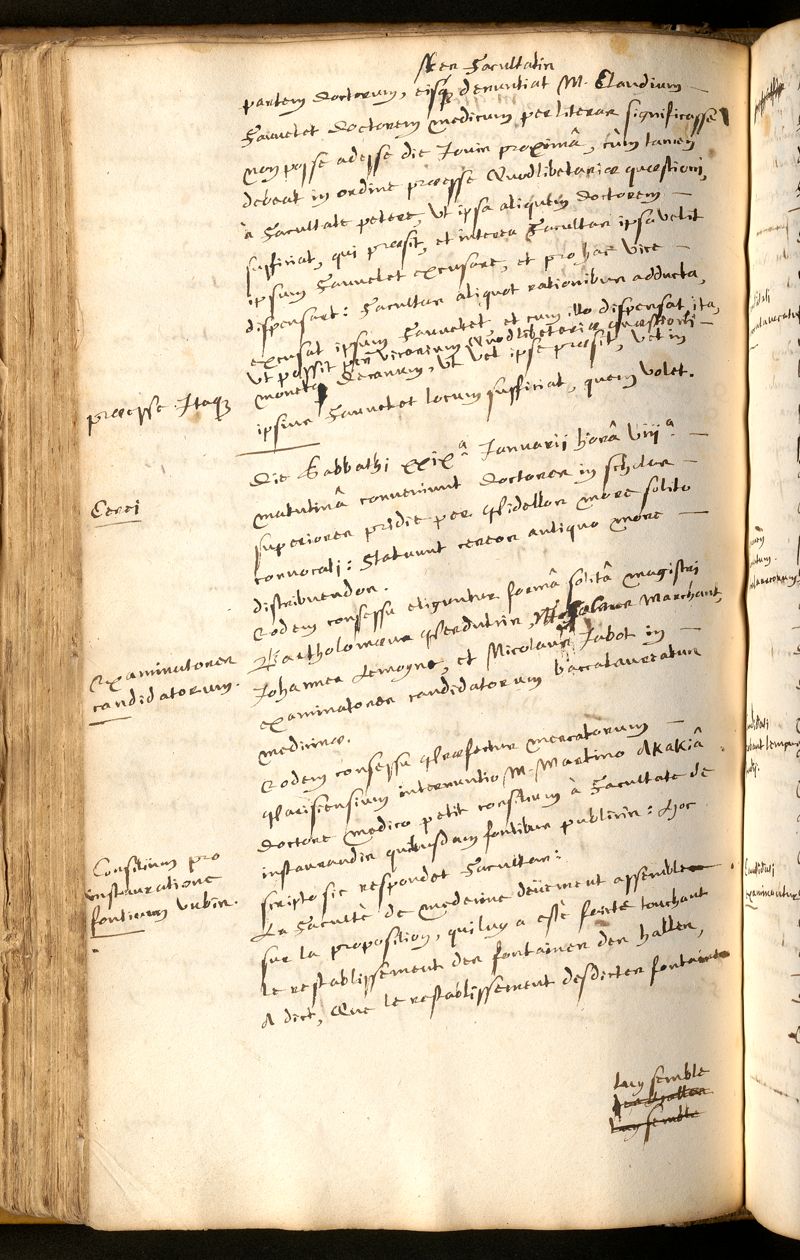 Facultatis
partem doctorum, eisq̃ denuntiat M. Claudium
Fauvelet doctorem medicum per literas significasse
non posse adesse die Jovis proximâ, cùm tamen
debeat in ordine præesse Quodlibetariæ quæstioni,
à Facultate petere, ut ipsa aliquem doctorem
sufficiat, qui præsit, et interea Facultas ipsa velit
ipsum Fauvelet excusare, et pro hac vice
dispensare: Facultas aliquot rationibus adducta,
excusat ipsum Fauvelet et cum illo dispensat ita,
ut possit per vicarium Quodlibetariæ quæstioni
præesse Itaq̃
monet Decanum, ut vel ipse præsit, vel in
ipsius Fauvelet locum sufficiat, quem volet.
Cerei
Die Sabbathi xxixª Januarii horâ viiiª
matutinâ conveniunt doctores in scholas
superiores pridie per Bidellos more solito
convocati: Statuunt cereos antiquo more
distribuendos.
Examinatores
candidatorum.
Eodem consessu eliguntur formâ solitâ magistri
Bartholomæus Perdulcis, Marchant,
Johannes Lemoyne, et Nicolaus Jabot in
examinatores candidatorum baccalaureatus
medicinæ.
Consilium pro
instauratione
fontium urbis.
Eodem consessu Præfectus mercatorum
Parisiensium internuntio M. Martino Akakiâ
doctore medico petit consilium à Facultate de
instaurandis quibusdam fontibus publicis: Hoc
scripto sic respondet Facultas:
La Facultè de medecine deüement assemblee
sur la proposition, qui luy a estè faicte touchant
le restablissement des fontaines des halles,
A dict, Que le restablissement desdictes fontaines
luy semble
des halles
luy semble